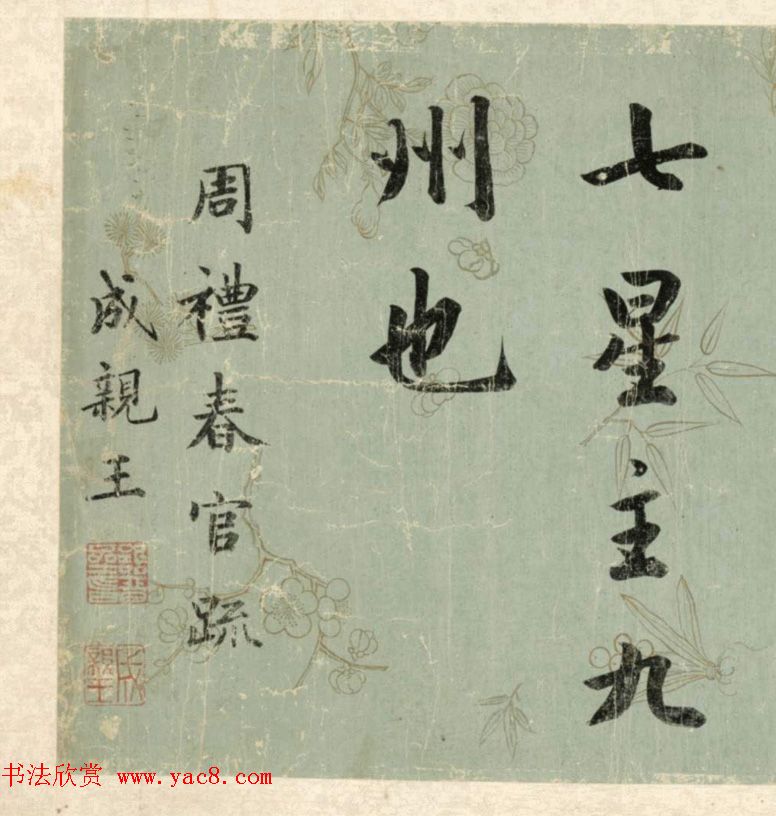 七星主九
州也
周禮春官疏
成親王
成親王
书法欣赏 www.yac8.com